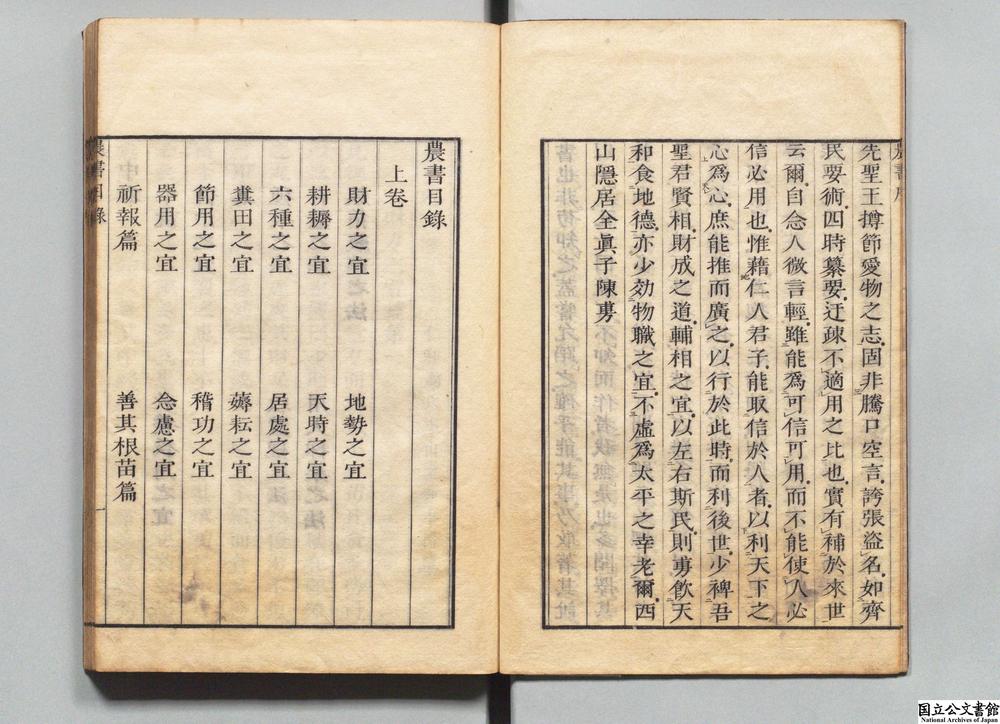 農書序
先聖王撙節愛物之志固非騰口空言誇張盜名如齊
民要術四時纂要迂疎不適用之比也實有補於來世
云爾自念人微言輕雖能爲可信可用而不能使人必
信必用也惟藉仁人君子能取信於人者以利天下之
心爲心庶能推而廣之以行於此時而利後世少裨吾
聖君賢相財成之道輔相之宜以左右斯民則旉飮天
和食地德亦少効物職之宜不虛爲太平之幸老爾西
山隱居全眞子陳旉
農書目錄
上卷
財力之宜 地勢之宜
耕耨之宜 天時之宜
六種之宜 居處之宜
糞田之宜 薅耘之宜
節用之宜 稽功之宜
器用之宜 念慮之宜
祈報篇 善其根苗篇
農書目錄 一
国立公文書館
National Archives of Japan